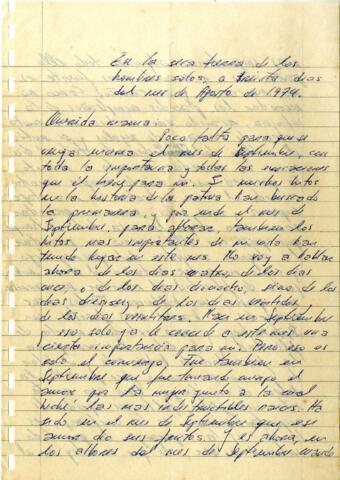 En la era tierra de los
hombres solos, a treinta dias
del mes de Agosto de 1974.
Querida mamá:
Poco falta para que se
venga encima el mes de Septiembre, con
toda la importancia y todas las
que él tiene para mi. Si muchos hitos
en la historia de la patria han buscado
la primavera, y por ende el mes de
Septiembre, para aflorar, tambien los
hitos mas importantes de mi vida han
tenido lugar en este mes. No voy a hablar
ahora de los dias cuatro, de los dias
once, o de los dias dieciocho, sino de los
dias, de los dias veintidos
de los dias. Nací en Septiembre
y eso solo ya le concede a este mes una
cierta importancia para mi. Pero eso es
solo el comienzo. Fue tambien en
Septiembre que fue tomando cuerpo el
amor por la mujer junto a la cual
heché las mas indestructibles raices. Ha
sido en el mes de Septiembre que ese
amor dio sus frutos. Y es ahora, en
los albores del mes de Septiembre cuando